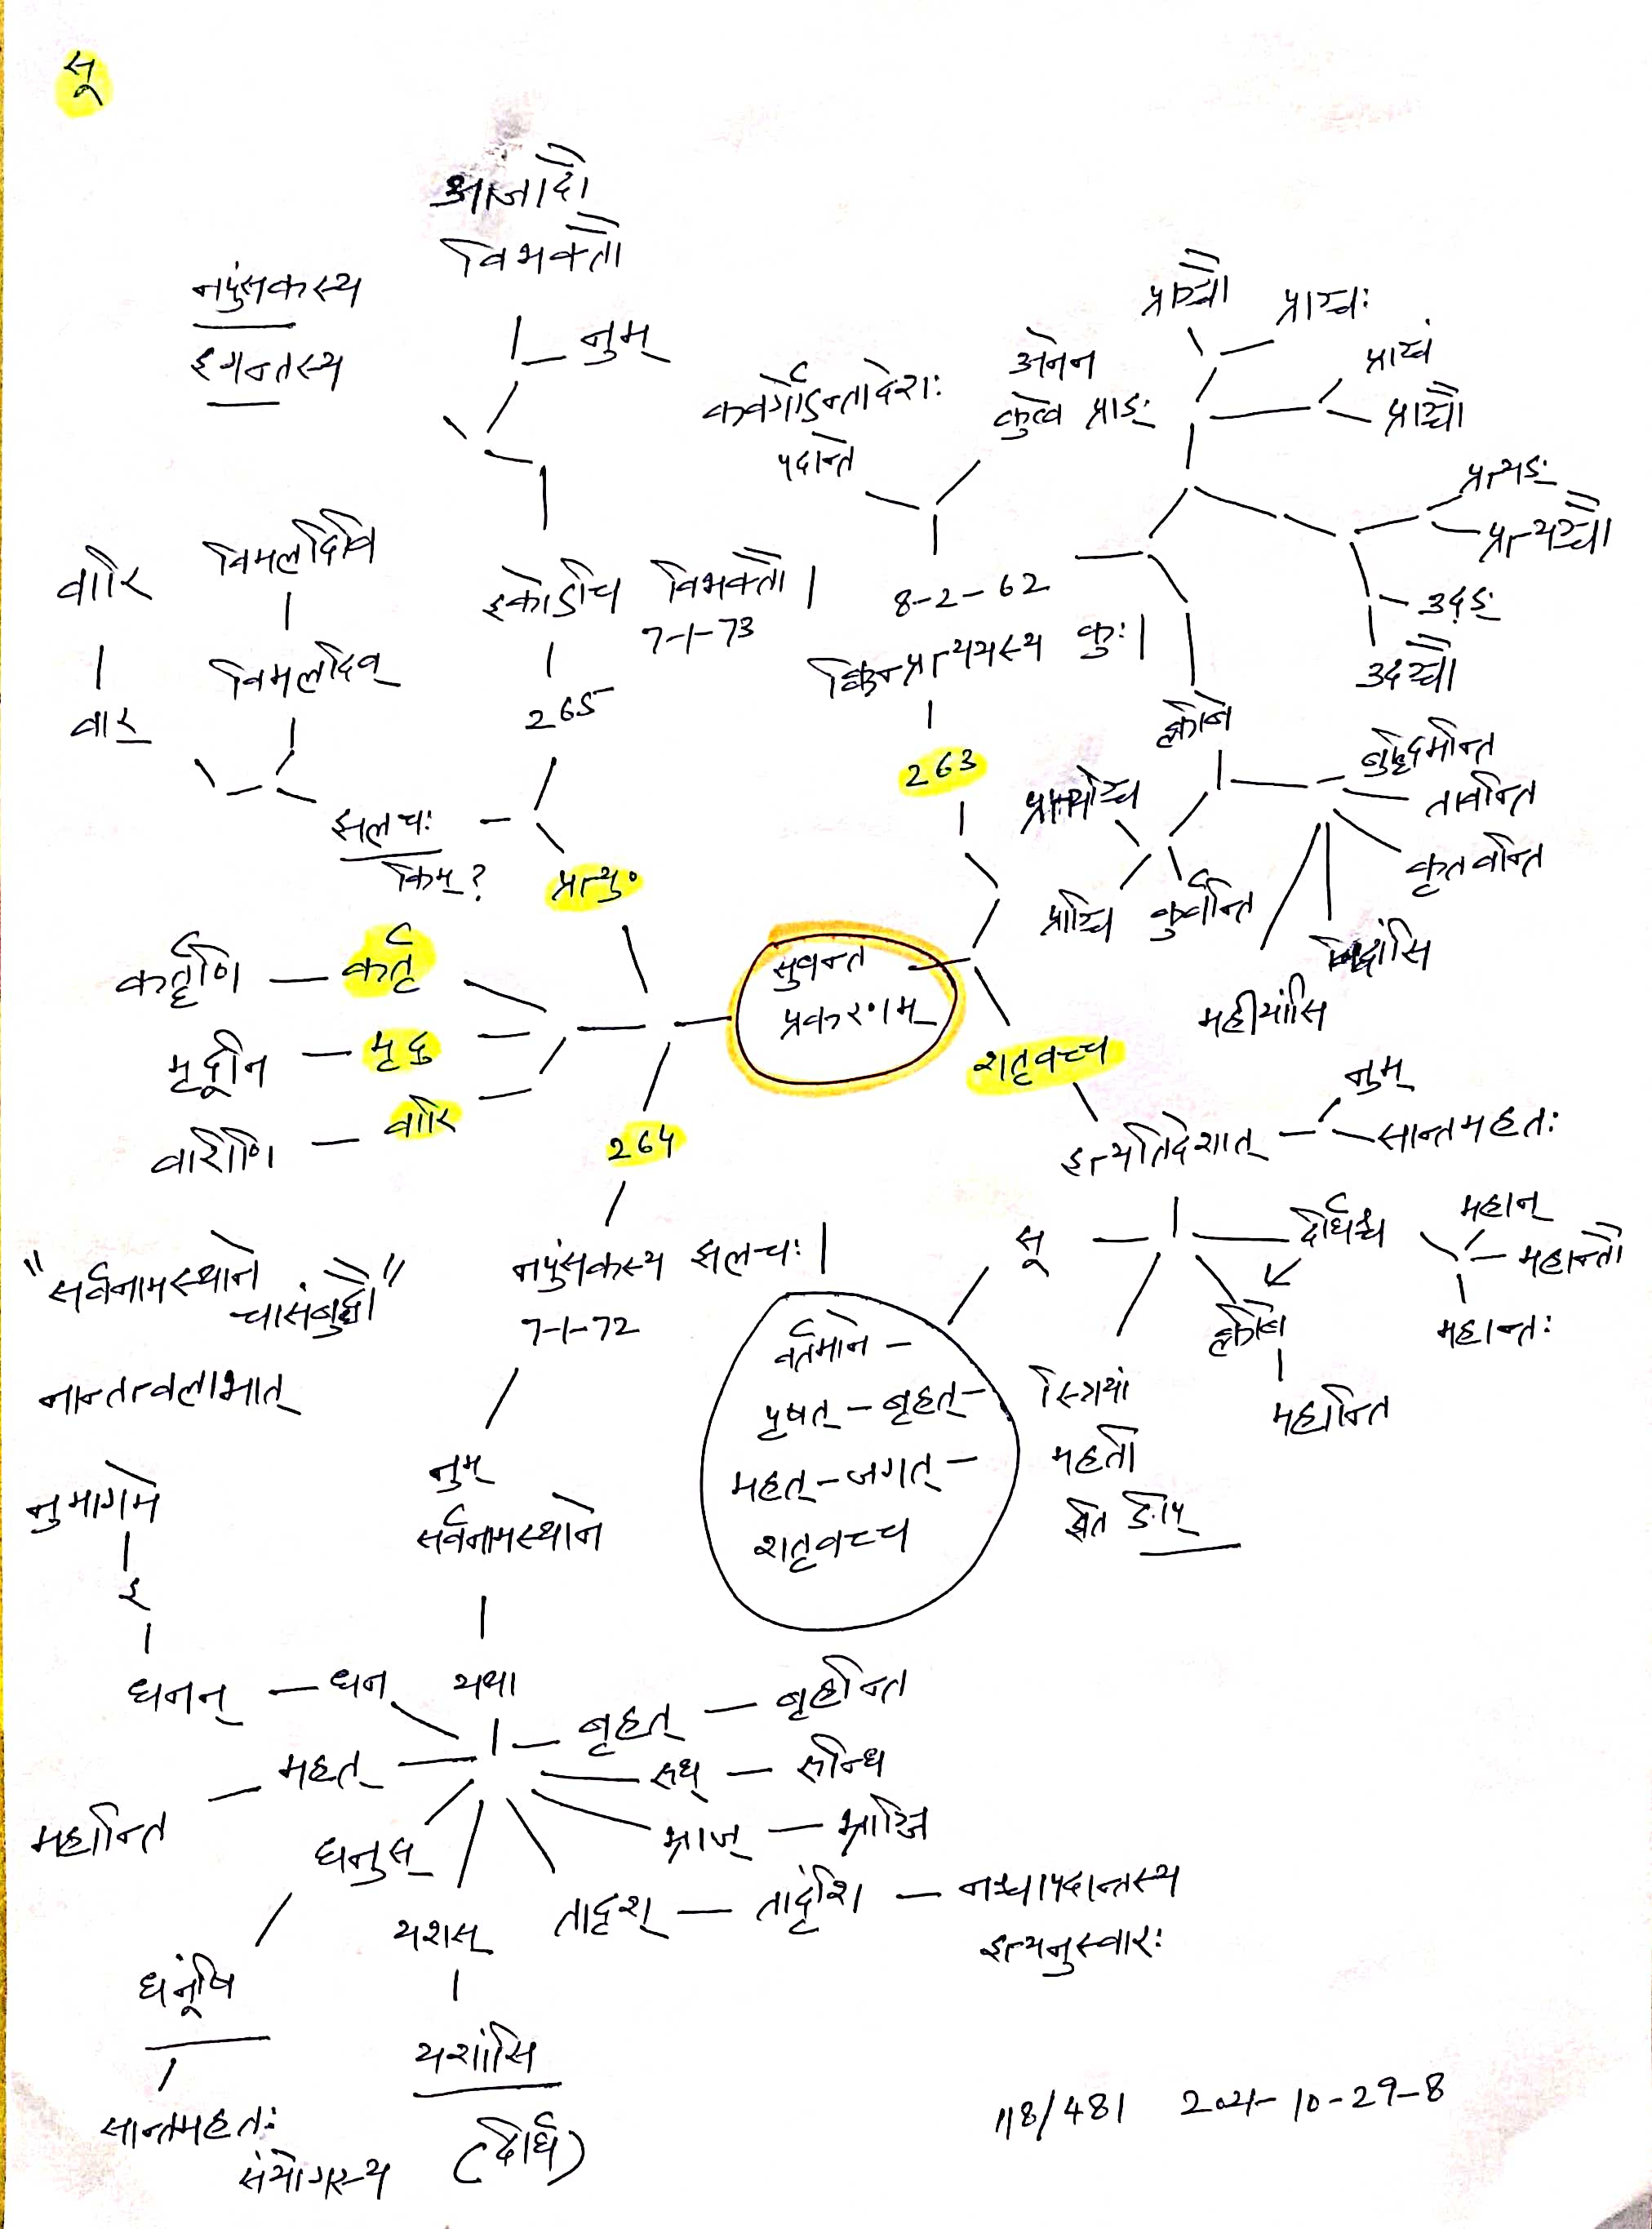 सू
अजादौ
विभक्तौ
नुम्
नपुंसकस्य
इगन्तस्य
वारि
वार्
विमलदिवि
विमलदिव्
इकोऽचि विभक्तौ।
7-1-73
265
झलचः
किम्?
प्रत्यु०
कवर्गोऽन्तादेशः
पदान्ते
अनेन
कुत्वे प्राङ्
8-2-62
क्विन्प्रत्ययस्य कुः।
263
प्राञ्चौ
प्राञ्चः
प्राञ्चं
प्राञ्चौ
प्रत्यङ्
प्रत्यञ्चौ
उदङ्
उदञ्चौ
क्लीबे
प्राञ्चि
कुर्वन्ति
बुद्धिमन्ति
तावन्ति
कृतवन्ति
विद्वांसि
महीयांसि
सुबन्त
प्रकरणम्
कर्तॄणि — कर्तृ
मृदूनि — मृदु
वारीणि — वारि
264
शतृवच्च
इत्यतिदेशात्
नुम्
सान्तमहतः
सू
दीर्घश्च
महान्
महान्तौ
महान्तः
क्लीबे
महान्ति
स्त्रियां
महती
इति ङीप्
वर्तमाने —
पृषत् — बृहत् —
महत् — जगत् —
शतृवच्च
"सर्वनामस्थाने
चासंबुद्धौ"
नान्तत्वलाभात्
नुमागमे
इ
नपुंसकस्य झलचः।
7-1-72
नुम्
सर्वनामस्थाने
यथा
धनन् — धन
बृहत् — बृहन्ति
महत्
महान्ति
रुध् — रुन्धि
भ्राज् — भ्राञ्जि
धनुस्
धनूंषि
सान्तमहतः
संयोगस्य
यशस्
यशांसि
(दीर्घे)
तादृश् — तादृंशि — नश्चापदान्तस्य
इत्यनुस्वारः
118/481 2021-10-29-8